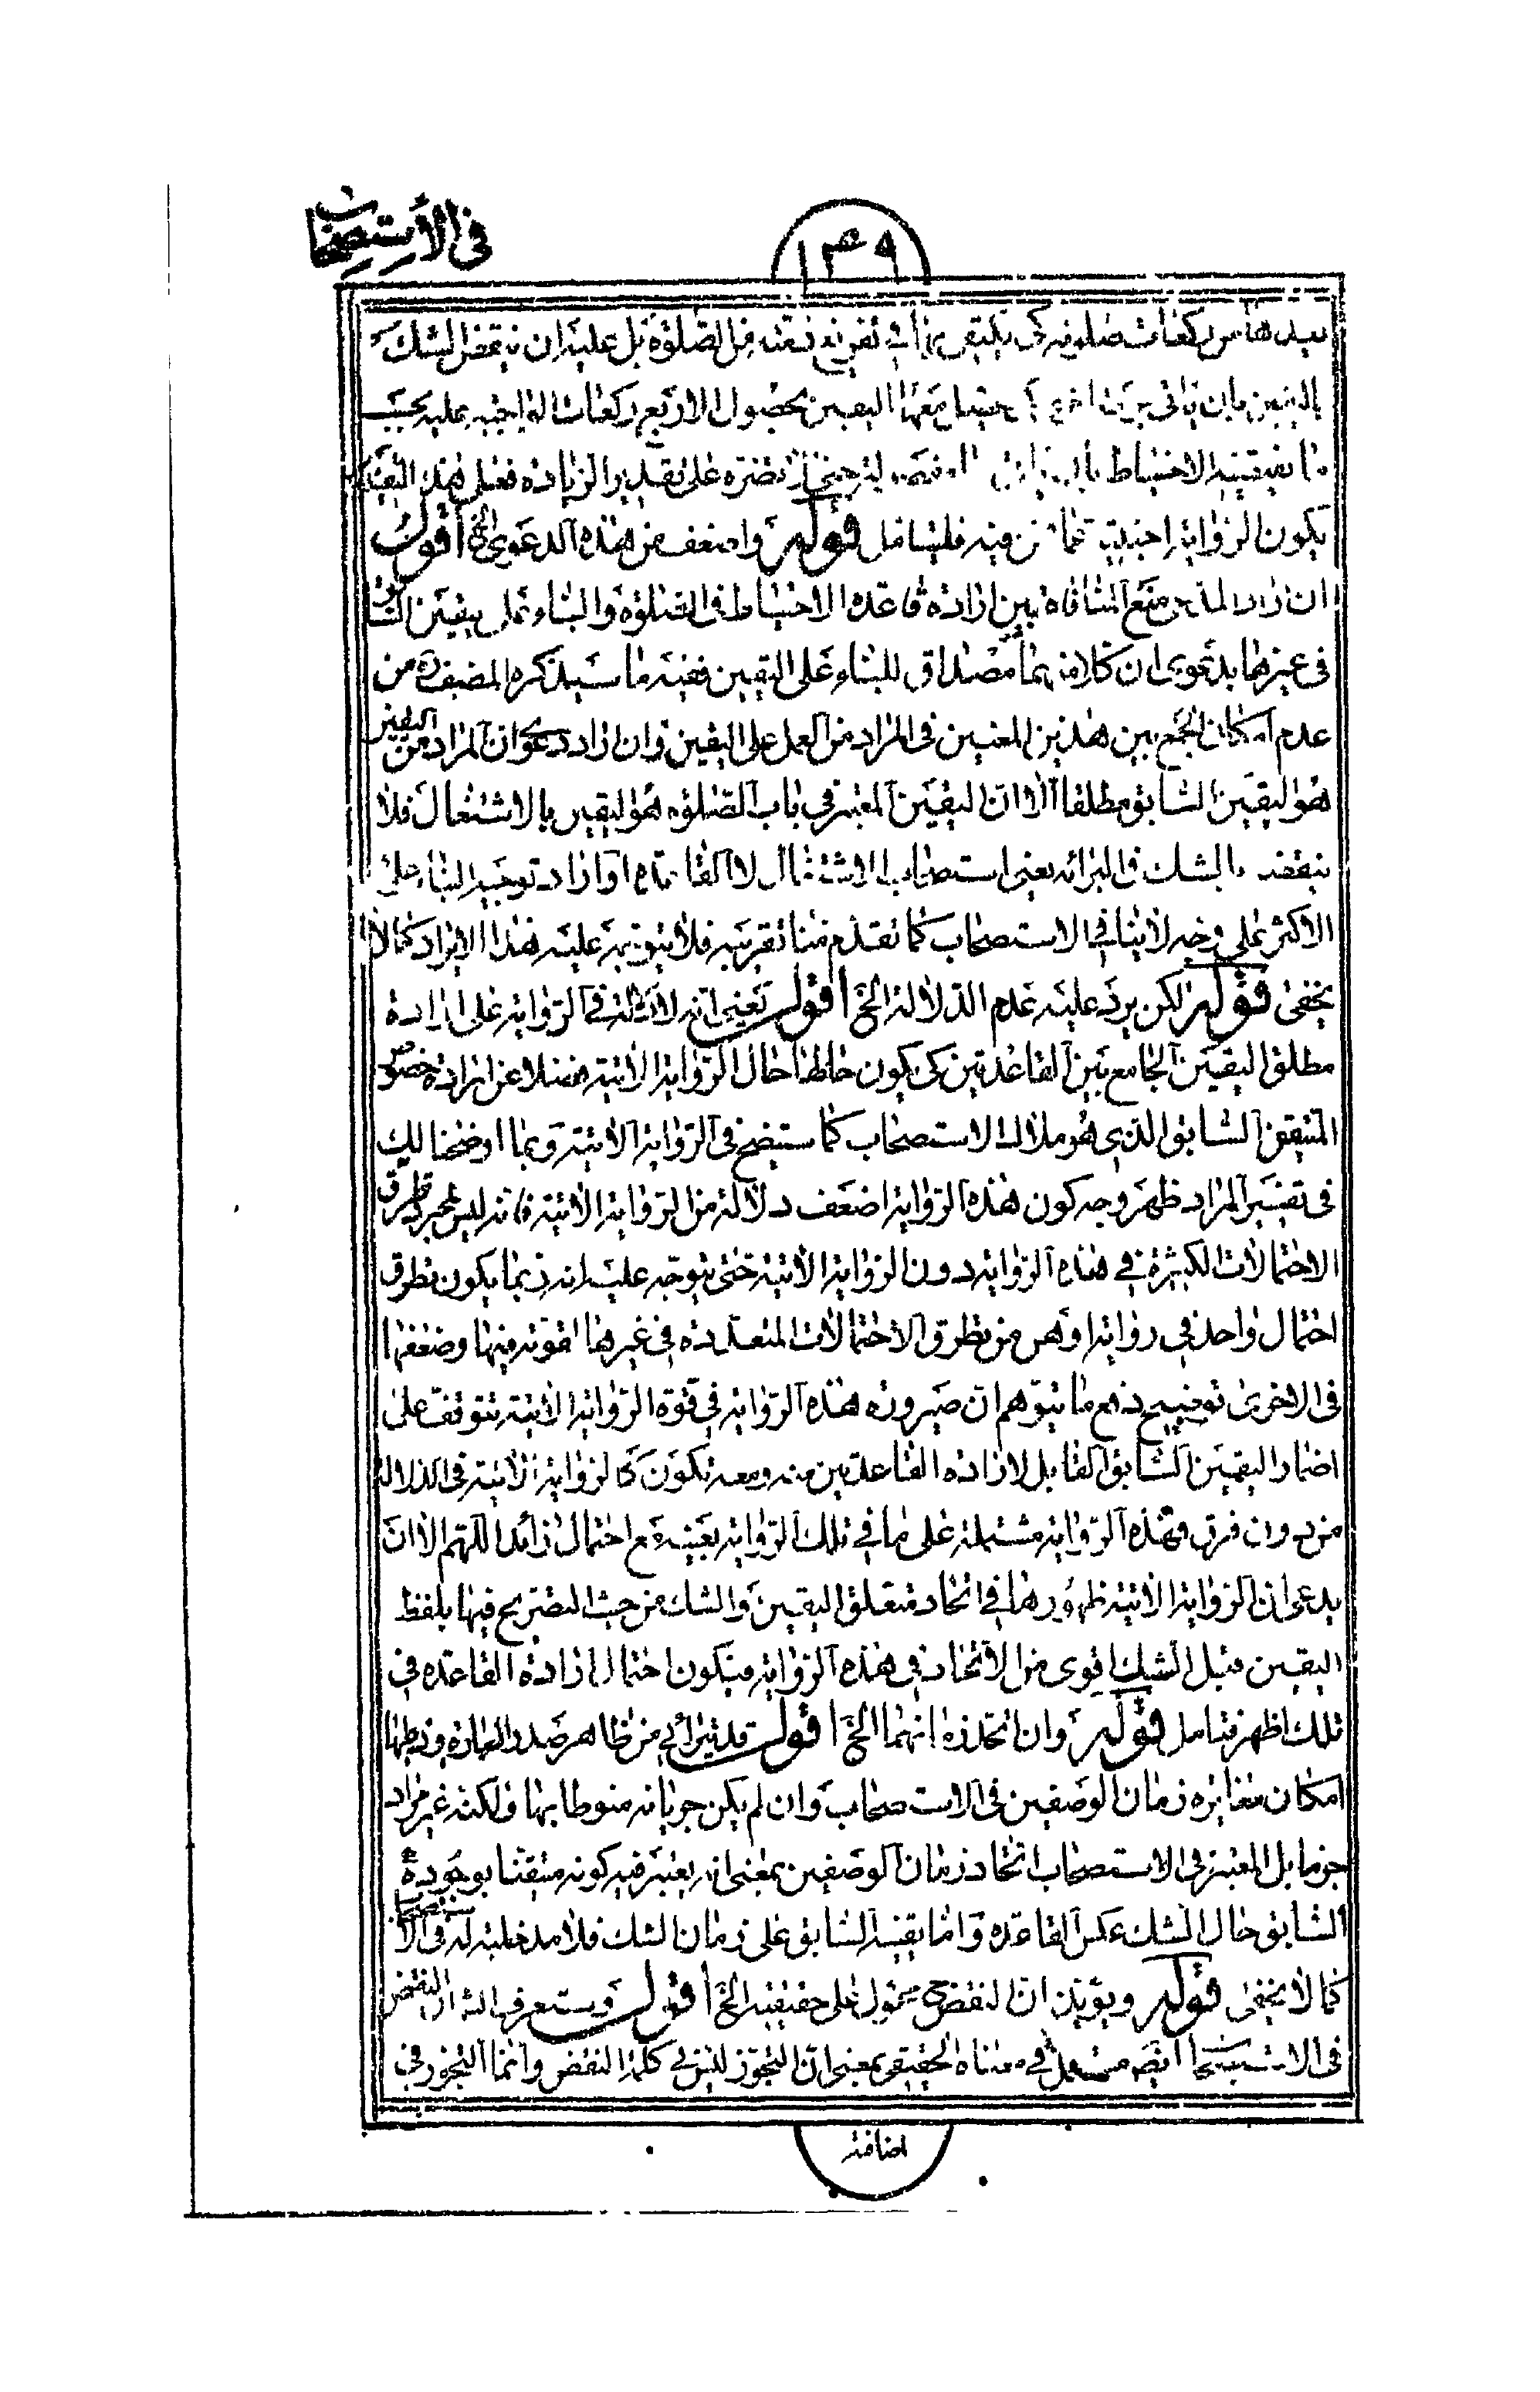 في الاستصحاب
١٣٩
بعدها من ركعات صلوته كي يكتفي بها في تفريغ ذمته من الصلوة بل عليه ان ينقض الشك
باليقين بان ياتي بركعة اخرى يحصل معها اليقين بحصول الاربع ركعات الواجبة عليه بحسب
ما يقتضيه الاحتياط تضره على تقدير الزيادة فعلى هذا التقدير
يكون الرواية اجنبية عما نحن فيه فليتامل قوله واضعف من هذه الدعوى الخ اقول
ان اراد المدعي منع المنافاة بين ارادة قاعدة الاحتياط في الصلوة والبناء على يقين السابق
في غيرها بدعوى ان كلا منهما مصداق للبناء على اليقين ففيه ما سيذكره المصنف ره من
عدم امكان الجمع بين هذين المعنيين في المراد من العمل على اليقين وان اراد دعوى ان المراد من اليقين
هو اليقين السابق مطلقا الا ان اليقين المعتبر في باب الصلوة هو اليقين بالاشتغال فلا
ينقضه بالشك في البرائة يعني استصحاب الاشتغال لا القاعدة او اراد توجيه البناء على
الاكثر على وجه لا ينافي الاستصحاب كما تقدم منا تقريبه فلا يتوجه عليه هذا الايراد كما لا
يخفى قوله لكن يرد عليه عدم الدلالة الخ اقول يعني انه لا دلالة في الرواية على ارادة
مطلق اليقين الجامع بين القاعدتين كي يكون حالها حال الرواية الاتية فضلا عن ارادة خصوص
المتيقن السابق الذي هو ملاك الاستصحاب كما ستيضح في الرواية الاتية وبما اوضحنا لك
في تفسير المراد ظهر وجه كون هذه الرواية اضعف دلالة من الرواية الاتية فانه ليس لمجرد تطرق
الاحتمالات الكثيرة في هذه الرواية دون الرواية الاتية حتى يتوجه عليه انه ربما يكون تطرق
احتمال واحد في رواية اوهن من تطرق الاحتمالات المتعددة في غيرها لقوته فيها وضعفها
في الاخرى توضيح دفع ما يتوهم ان صيرورة هذه الرواية في قوة الرواية الاتية يتوقف على
اضمار اليقين السابق القابل لارادة القاعدتين منه ومعه تكون كالرواية الاتية في الدلالة
من دون فرق وهذه الرواية مشتملة على ما في تلك الرواية بعينه مع احتمال زائد اللهم الا ان
يدعى ان الرواية الاتية ظهورها في اتحاد متعلق اليقين والشك من حيث التصريح فيها بلفظ
اليقين قبل الشك اقوى من الاتحاد في هذه الرواية فيكون احتمال ارادة القاعدة في
تلك اظهر فتامل قوله وان اتحد زمانهما الخ اقول قد يترائى من ظاهر صدر العبارة وذيلها
امكان مغايرة زمان الوصفين في الاستصحاب وان لم يكن جريانه منوطا بها ولكنه غير مراد
جزما بل المعتبر في الاستصحاب اتحاد زمان الوصفين بمعنى انه يعتبر فيه كونه متيقنا بوجوده
السابق حال الشك عكس القاعدة واما يقينه السابق على زمان الشك فلا مدخلية له في الاستصحاب
كما لا يخفى قوله ويؤيده ان النقض ح محمول على حقيقته الخ اقول وستعرف انش ان النقض
في الاستصحاب ايضا مستعمل في معناه الحقيقي بمعنى ان التجوز ليس في كلمة النقض وانما التجوز في
اضافته